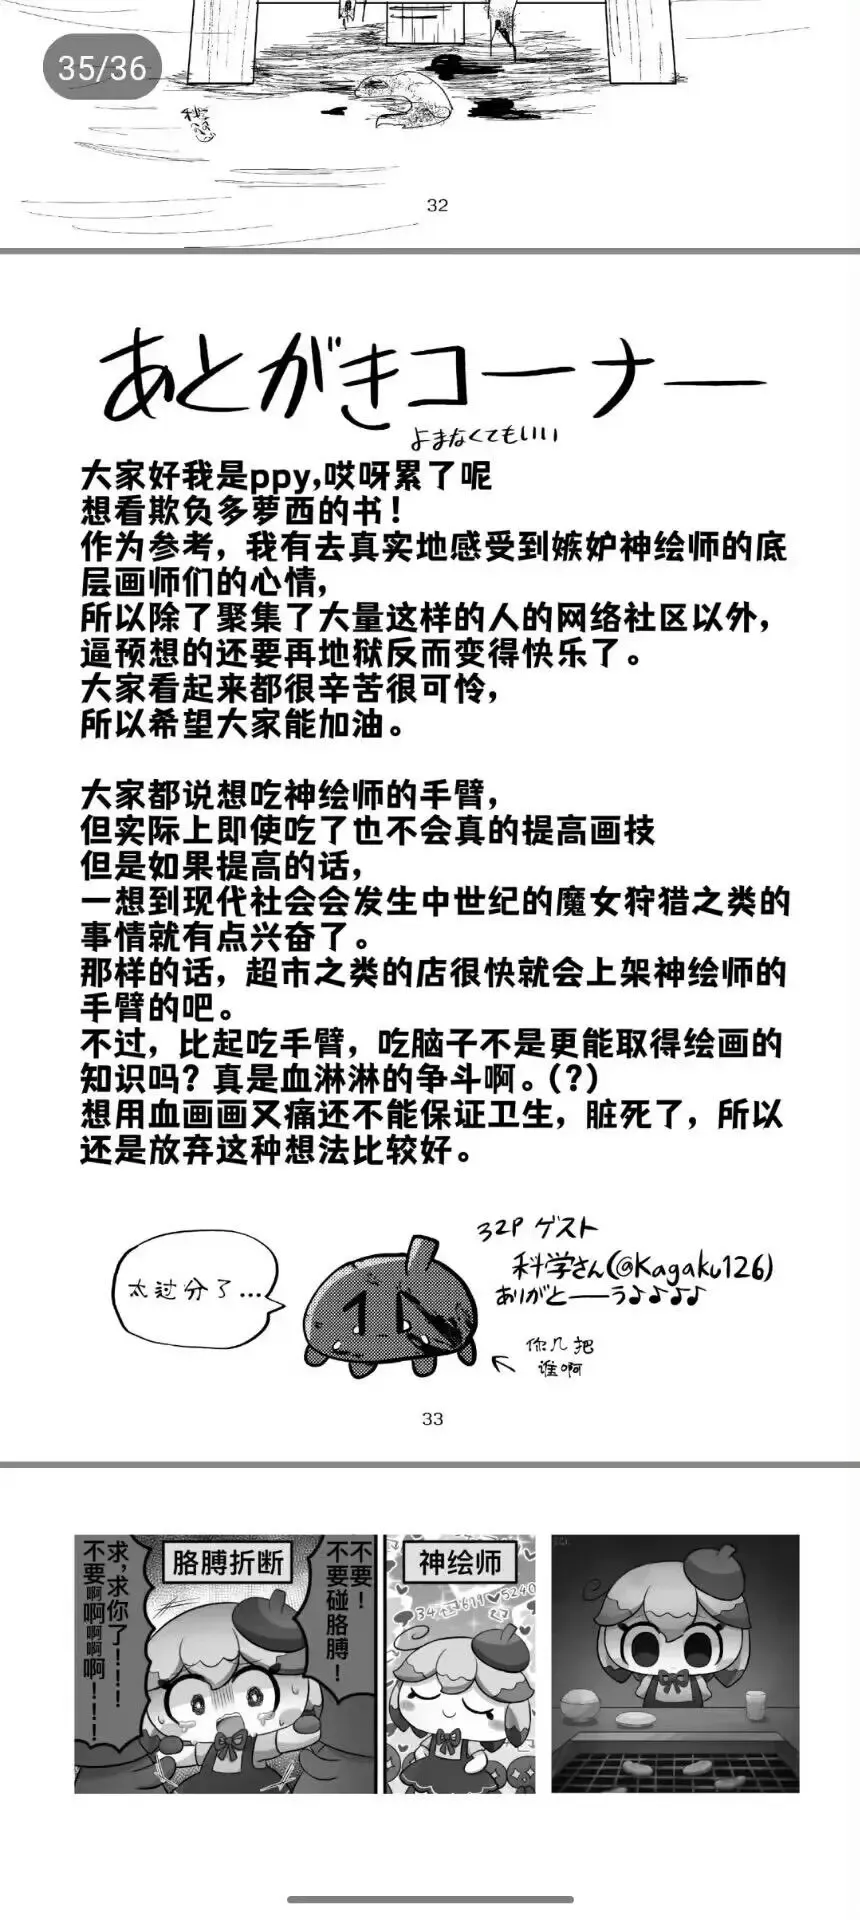 35/36
32
あとがきコーナー
よまなくてもいい
大家好我是ppy,哎呀累了呢
想看欺负多萝西的书！
作为参考，我有去真实地感受到嫉妒神绘师的底
层画师们的心情，
所以除了聚集了大量这样的人的网络社区以外，
逼预想的还要再地狱反而变得快乐了。
大家看起来都很辛苦很可怜，
所以希望大家能加油。
大家都说想吃神绘师的手臂，
但实际上即使吃了也不会真的提高画技
但是如果提高的话，
一想到现代社会会发生中世纪的魔女狩猎之类的
事情就有点兴奋了。
那样的话，超市之类的店很快就会上架神绘师的
手臂的吧。
不过，比起吃手臂，吃脑子不是更能取得绘画的
知识吗？真是血淋淋的争斗啊。（？）
想用血画画又痛还不能保证卫生，脏死了，所以
还是放弃这种想法比较好。
32P ゲスト
科学さん(@Kagaku126)
ありがとーーう♪♪♪♪
太过分了...
你几把
谁啊
33
不要！
不要碰胳膊！
胳膊折断
求，求你了！！！
不要啊啊啊啊！！！
神绘师